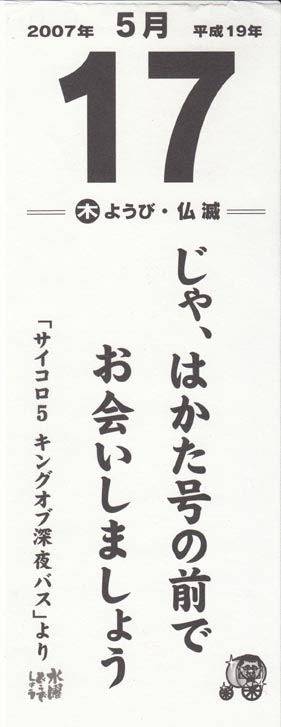 2007年 5月 平成19年
17
木ようび・仏滅
じゃ、はかた号の前で
お会いしましょう
「サイコロ5 キングオブ深夜バス」より
水曜
どうでしょう